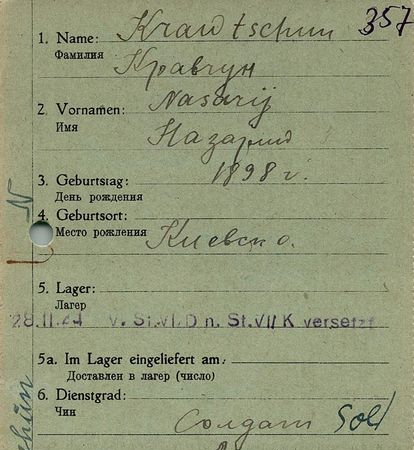 357
1. Name: Krawtschun
Фамилия Кравчун
2. Vornamen: Nasarij
Имя Назарий
3. Geburtstag: 1898 г.
День рождения
4. Geburtsort:
Место рождения Киевск о.
5. Lager:
Лагерь
28.11.44 v. St.VI/D n. St.VI/K versetzt
5a. Im Lager eingeliefert am:
Доставлен в лагерь (число)
6. Dienstgrad:
Чин Солдат Sold